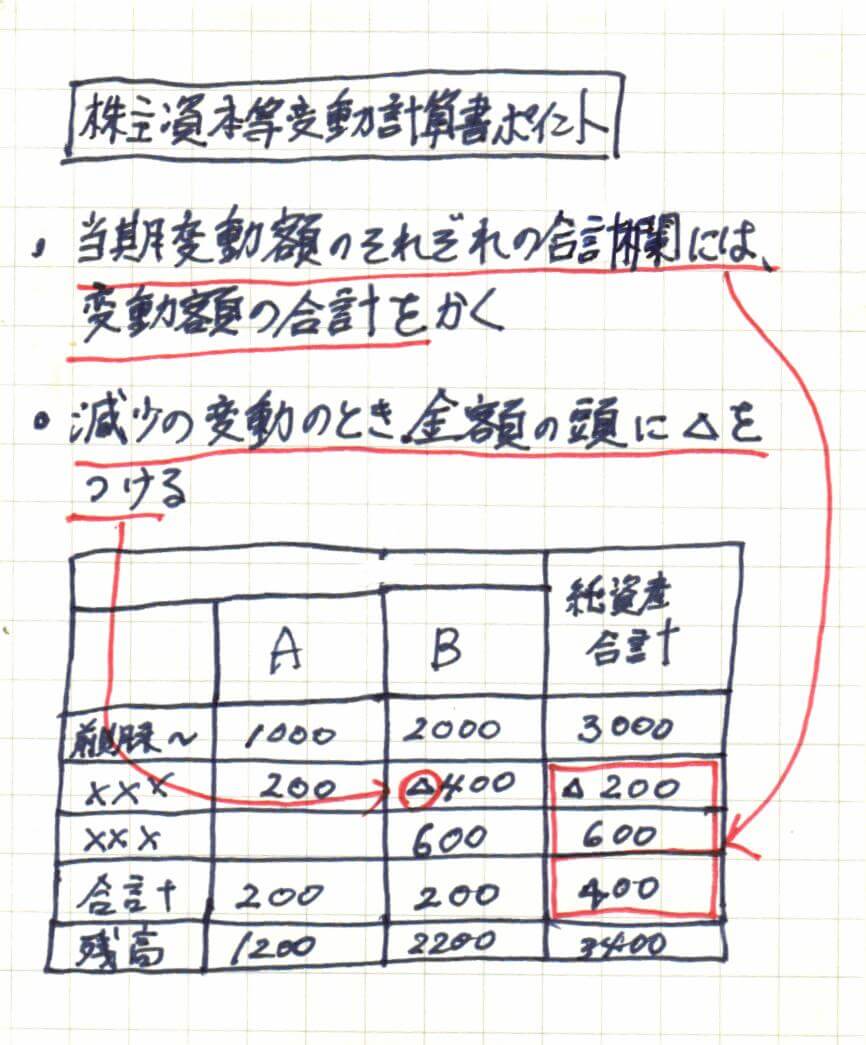 株主資本等変動計算書ポイント
・当期変動額のそれぞれの合計欄には、
変動額の合計をかく
・減少の変動のとき金額の頭に△を
つける
純資産
合計
A B
前期末〜 1000 2000 3000
××× 200 △400 △200
××× 600 600
合計 200 200 400
残高 1200 2200 3400